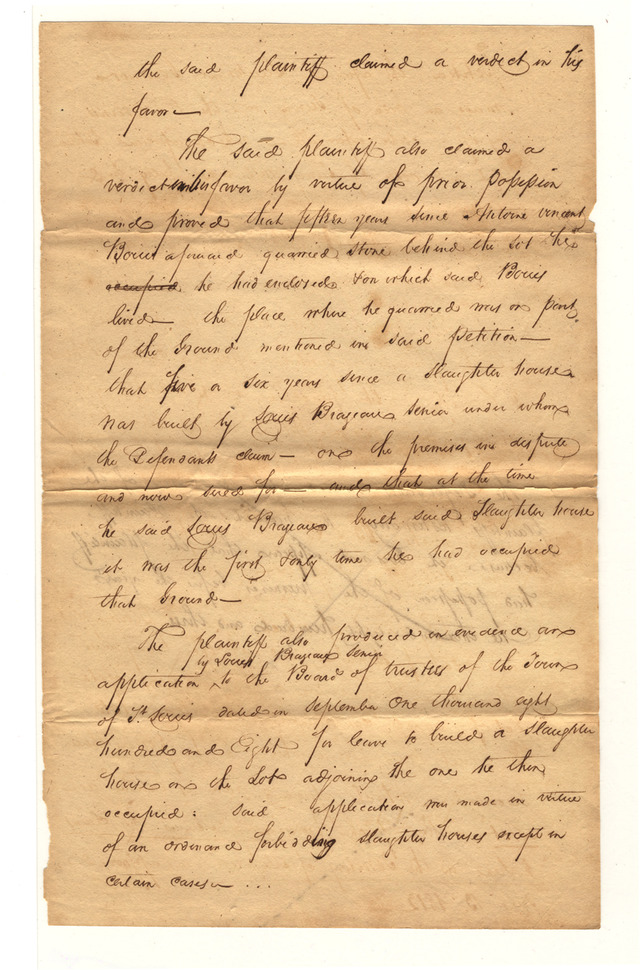 the said plaintiff claimed a verdict in his
favor—
The said plaintiff also claimed a
verdict in his favor by virtue of prior possession
and proved that fifteen years since Antoine vincent
Bouis aforesaid quarried stone behind the Lot he
occupied he had enclosed & on which said Bouis
lived— the place where he quarried was on part
of the Ground mentioned in said petition—
that five or six years since a slaughter house
was built by Louis Brazeau senior under whom
the Defendants claim— on the premises in dispute
and now sued for— and that at the time
he said Louis Brazeau built said Slaughter house
it was the first & only time he had occupied
that Ground—
The plaintiff also produced in evidence an
by Louis Brazeau Senior
application to the Board of trustees of the Town
of St. Louis dated in september One thousand eight
hundred and Eight for leave to build a slaughter
house on the Lot adjoining the one he then
occupied: said application was made in virtue
of an ordinance forbidding slaughter houses except in
certain cases— ...